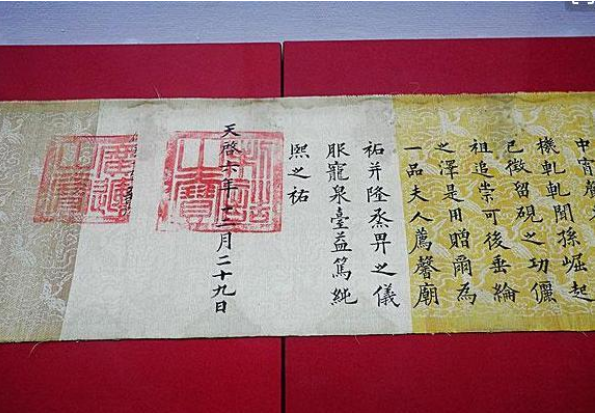 中
機軋軋聞孫崛起
已徵留硯之功儷
祖追崇可後垂綸
之澤是用贈爾為
一品夫人薦馨廟
祐并隆烝畀之儀
服寵泉臺益篤純
熙之祐
天啓六年十二月二十九日
制誥之寶
廣運之寶